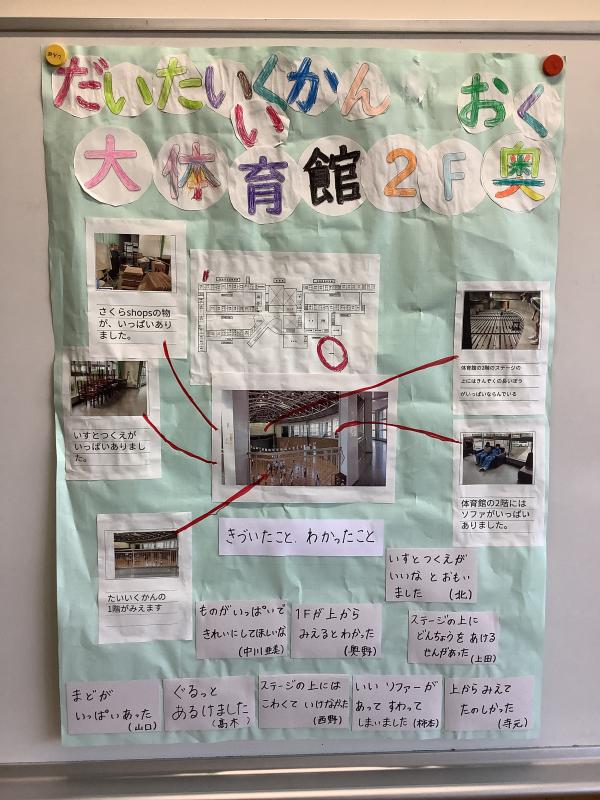 だいたいくかん おく
い
大体育館2F奥
さくらshopsの物
が、いっぱいあり
ました。
体育館の2階のステージの
上にはきんぞくの長いぼう
がいっぱいならんでいる
いすとつくえが
いっぱいありまし
た。
体育館の2階には
ソファがいっぱい
ありました。
たいいくかんの
1階がみえます
きづいたこと、わかったこと
いすとつくえが
いいな とおもい
ました (北)
ものがいっぱいで
きれいにしてほしいな
(中川
1Fが上から
みえるとわかった
(奥野)
ステージの上に
どんちょうを あける
せんがあった (上田)
まどが
いっぱいあった
(山口)
ぐるっと
あるけました
(高木)
ステージの上には
こわくて いけなかった
(西野)
いい ソファーが
あって すわって
しまいました (柿本)
上からみえて
たのしかった
(寺元)